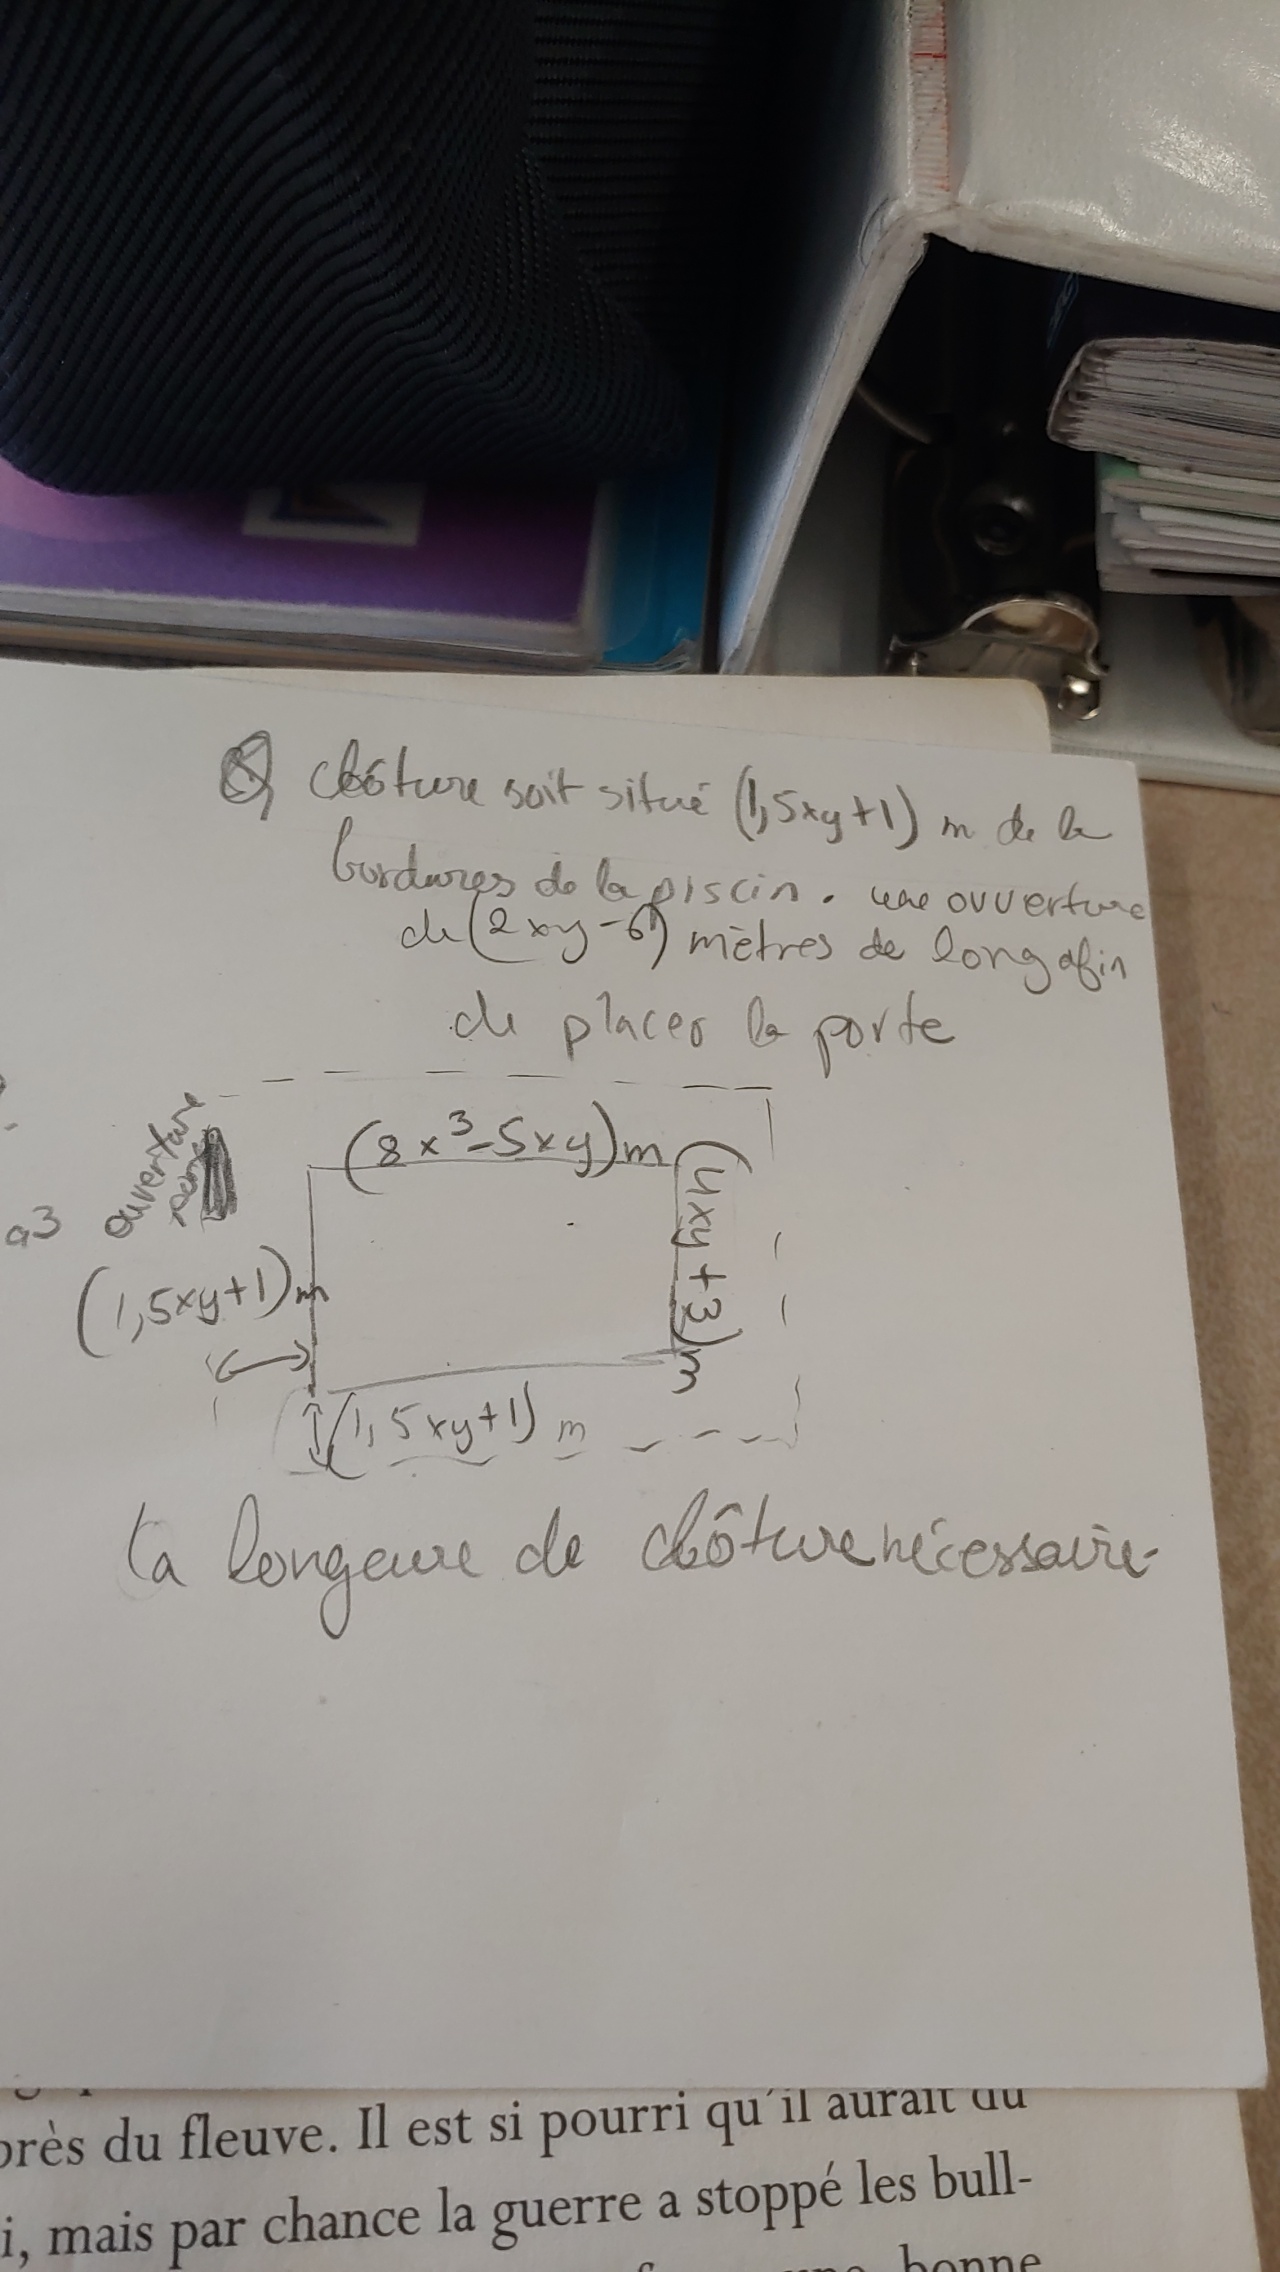 clôture soit situé (1,5xy+1) m de la
bordures de la piscin. une ouverture
de (2xy-6) mètres de long afin
de placer la porte
ouverture
(8x³-5xy)m
(4xy+3)m
a3
(1,5xy+1)m
(1,5xy+1) m
la longeure de clôture nécessaire.
près du fleuve. Il est si pourri qu'il aurait dû
i, mais par chance la guerre a stoppé les bull-
bonne